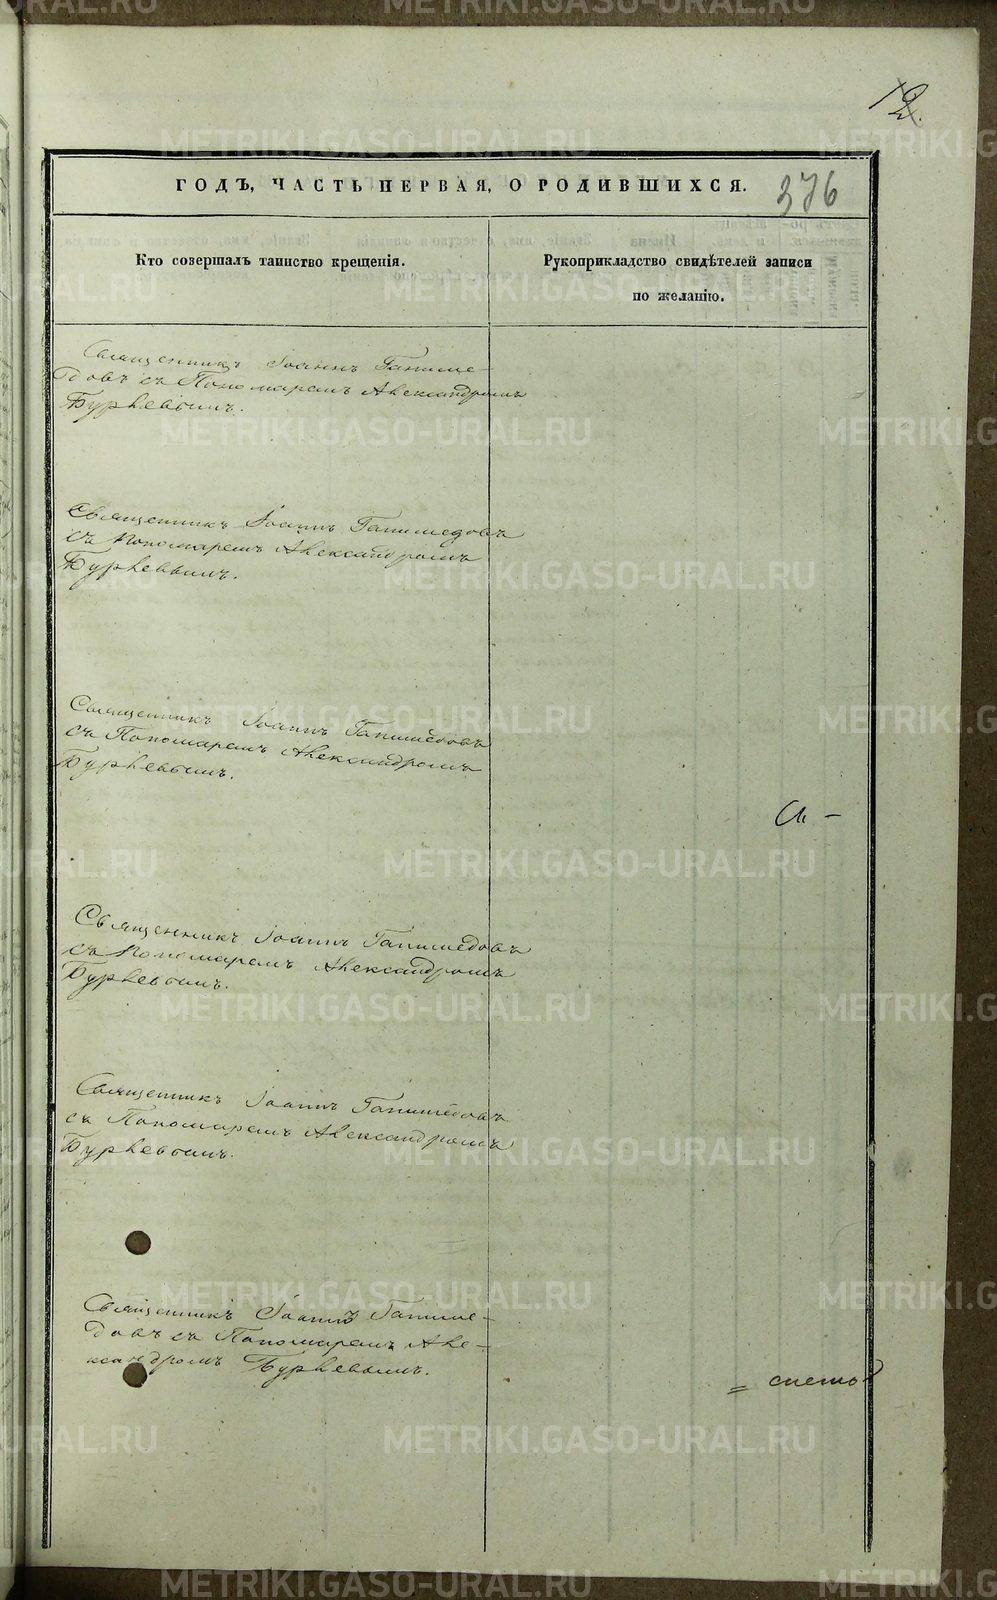 12.
ГОДЪ, ЧАСТЬ ПЕРВАЯ, О РОДИВШИХСЯ.
376
Кто совершалъ таинство крещенія.
Рукоприкладство свидѣтелей записи
по желанію.
Священникъ Іоаннъ Ганиме-
довъ съ Пономаремъ Александромъ
Бурлевымъ.
Священникъ Іоаннъ Ганимедовъ
съ Пономаремъ Александромъ
Бурлевымъ.
Священникъ Іоаннъ Ганимедовъ
съ Пономаремъ Александромъ
Бурлевымъ.
Священникъ Іоаннъ Ганимедовъ
съ Пономаремъ Александромъ
Бурлевымъ.
Священникъ Іоаннъ Ганимедовъ
съ Пономаремъ Александромъ
Бурлевымъ.
Священникъ Іоаннъ Ганиме-
довъ съ Пономаремъ Але-
ксандромъ Бурлевымъ.
METRIKI.GASO-URAL.RU